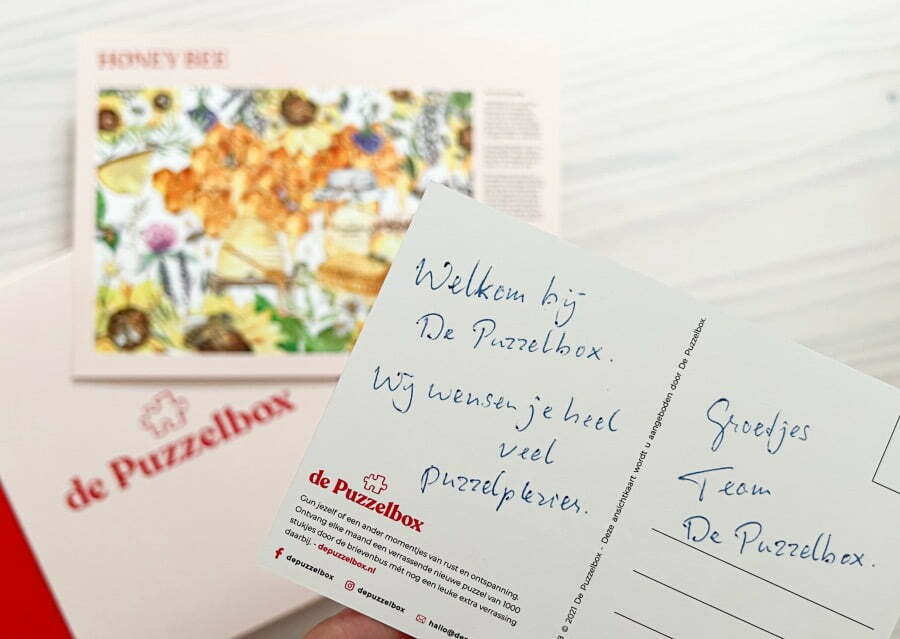 HONEY BEE
de Puzzelbox
Welkom bij
De Puzzelbox.
Wij wensen je heel
veel
puzzelplezier.
de Puzzelbox
Gun jezelf of een ander momentjes van rust en ontspanning.
Ontvang elke maand een verrassende nieuwe puzzel van 1000
stukjes door de brievenbus mét nog een leuke extra verrassing
daarbij. - depuzzelbox.nl
depuzzelbox
depuzzelbox
© 2021 De Puzzelbox - Deze ansichtkaart wordt u aangeboden door De Puzzelbox.
Groetjes
Team
De Puzzelbox.